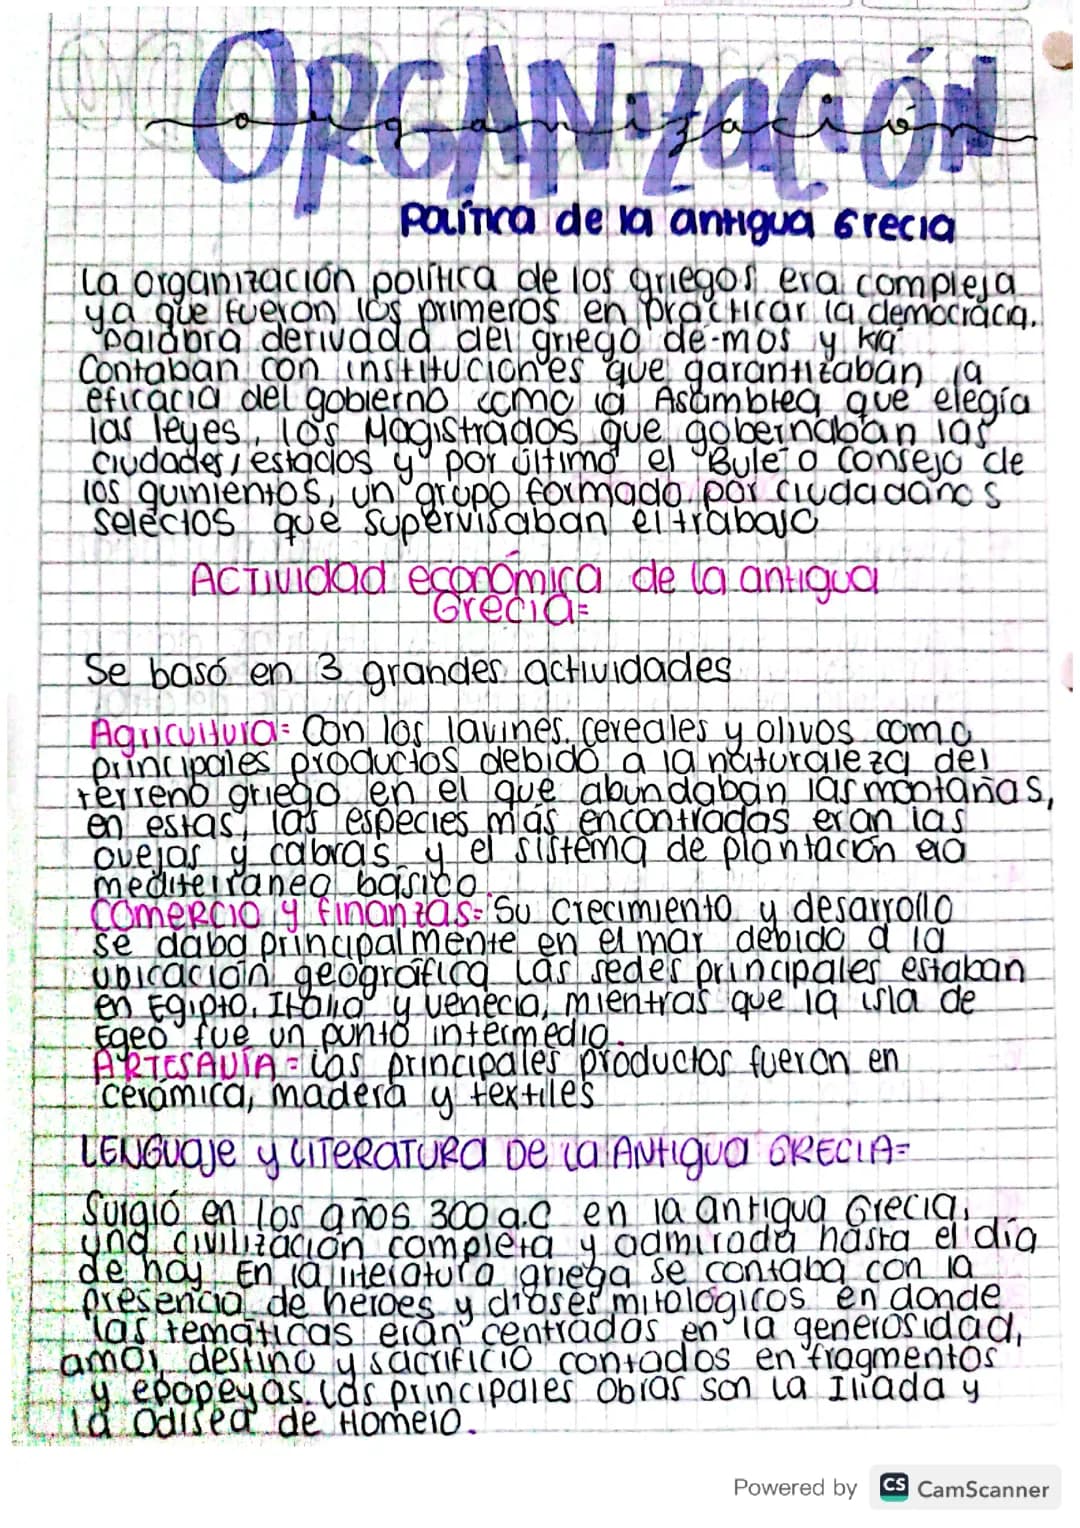 ORGANIZACIÓN
organización
Política de la antigua Grecia
La organización política de los griegos era compleja
ya que fueron los primeros en practicar la democraca.
Palabra derivada del griego de-mos y kra
Contaban con instituciones que garantizaban la
eficacia del gobierno como la Asamblea que elegía
las leyes, los Magistrados que gobernaban las
ciudades, estados y por último el "Bule" o Consejo de
los quinientos, un grupo formado por ciudadanos
selectos que supervisaban el trabajo
Actividad económica de la antigua
Grecia=
Se basó en 3 grandes actividades
Agricultura= Con los lavines, cereales y olivos como
principales productos debido a la naturaleza del
terreno griego en el que abundaban las montañas,
en estas, las especies más encontradas eran las
ovejas y cabras y el sistema de plantación era
mediterraneo básico.
Comercio y finanzas= Su crecimiento y desarrollo
se daba principalmente en el mar debido a la
ubicación geográfica Las sedes principales estaban
en Egipto, Italia y Venecia, mientras que la isla de
Egeo fue un punto intermedio.
ARTESANÍA= Las principales productos fueron en
cerámica, madera y textiles
LENGUAje y LITERATURA DE La ANTIGUA GRECIA=
Surgió en los años 300 a.C en la antigua Grecia,
una civilización completa y admirada hasta el día
de hoy En la literatura griega se contaba con la
presencia de héroes y dioses mitológicos en donde
las temáticas eran centradas en la generosidad,
amor, destino y sacrificio contados en fragmentos
y epopeyas. Las principales obras son La Iliada y
la Odisea de Homero.
Powered by CS CamScanner